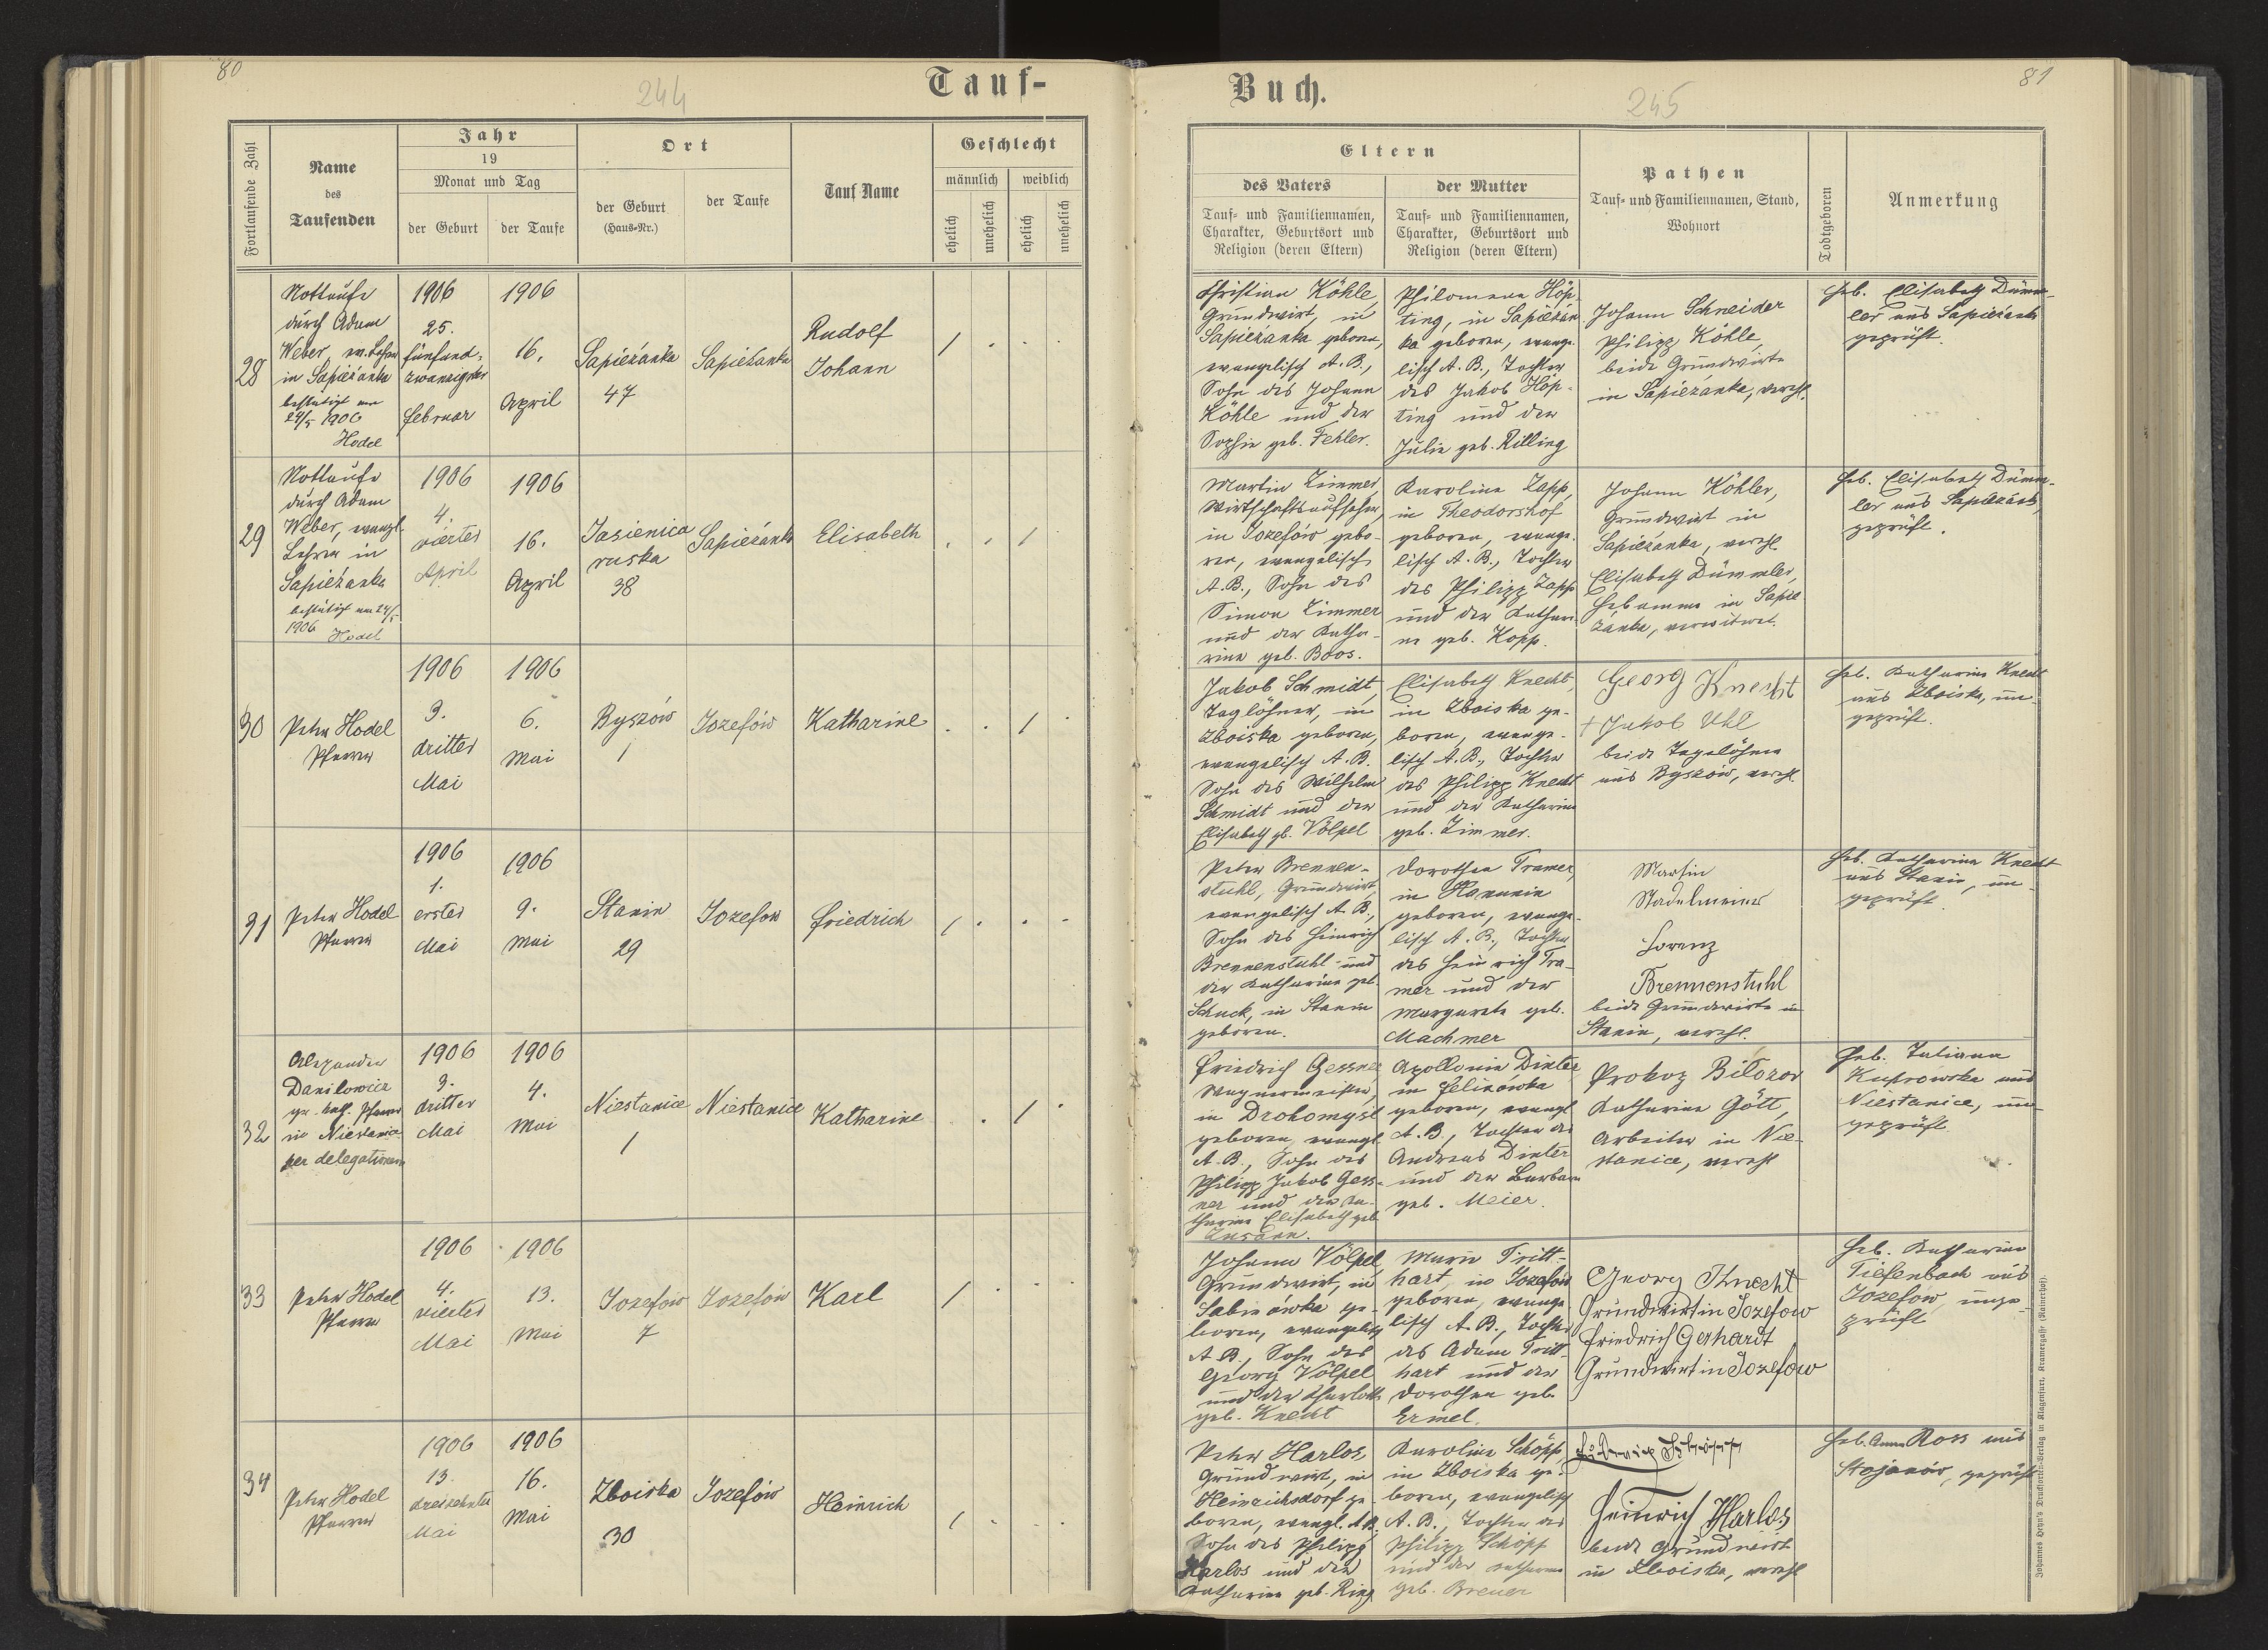 80
244
Tauf-
Fortlaufende Zahl
Name
des
Taufenden
Jahr
19
Monat und Tag
der Geburt
der Taufe
Ort
der Geburt
(Haus-Nr.)
der Taufe
Tauf Name
Geschlecht
männlich
weiblich
ehelich
unehelich
ehelich
unehelich
28
Nottaufe
durch Adam
Weber, ev. Lehrer
in Sapieżanka
bestätigt am
24/5 1906
Hodel
1906
25.
fünfund-
zwanzigster
Februar
1906
16.
April
Sapieżanka
47
Sapieżanka
Rudolf
Johann
29
Nottaufe
durch Adam
Weber, evangl.
Lehrer in
Sapieżanka
bestätigt am 24/5
1906 Hodel
1906
4.
vierter
April
1906
16.
April
Jasienica
ruska
38
Sapieżanka
Elisabeth
30
Peter Hodel
Pfarrer
1906
3.
dritter
Mai
1906
6.
Mai
Byszów
1
Jozefów
Katharine
31
Peter Hodel
Pfarrer
1906
1.
erster
Mai
1906
9.
Mai
Stanin
29
Jozefow
Friedrich
32
Alexander
Danilowicz
gr. kath. Pfarrer
in Niestanice
per delegationem
1906
3.
dritter
Mai
1906
4.
Mai
Niestanice
1
Niestanice
Katharine
33
Peter Hodel
Pfarrer
1906
4.
vierter
Mai
1906
13.
Mai
Jozefow
7
Jozefow
Karl
34
Peter Hodel
Pfarrer
1906
13.
dreizehnter
Mai
1906
16.
Mai
Zboiska
30
Jozefów
Heinrich
Buch.
245
81
Eltern
des Vaters
Tauf- und Familiennamen,
Charakter, Geburtsort und
Religion (deren Eltern)
der Mutter
Tauf- und Familiennamen,
Charakter, Geburtsort und
Religion (deren Eltern)
Pathen
Tauf- und Familiennamen, Stand,
Wohnort
Todtgeboren
Anmerkung
Christian Köhle,
Grundwirt, in
Sapieżanka geboren,
evangelisch A. B.,
Sohn des Johann
Köhle und der
Sophie geb. Fehler.
Philomena Höp-
ting, in Sapieżan
ka geboren, evange-
lisch A. B., Tochter
des Jakob Höp-
ting und der
Julie geb. Rilling
Johann Schneider
Philipp Köhle,
beide Grundwirte
in Sapieżanka, verehl.
Heb. Elisabeth Dümm-
ler aus Sapieżank
geprüft.
Martin Zimmer,
Wirtschaftsaufseher,
in Jozefów gebo-
ren, evangelisch
A. B., Sohn des
Simon Zimmer
und der Katha-
rine geb. Boos.
Karoline Zapp,
in Theodorshof
geboren, evange-
lisch A. B., Tochter
des Philipp Zapp
und der Kathari-
ne geb. Kopp.
Johann Köhler,
Grundwirt in
Sapieżanka, verehl.
Elisabeth Dümmler,
Hebamme in Sapie
żanka, verwitwet.
Heb. Elisabeth Dümm-
ler aus Sapieżank,
geprüft.
Jakob Schmidt,
Taglöhner, in
Zboiska geboren,
evangelisch A. B.
Sohn des Wilhelm
Schmidt und der
Elisabeth gb. Völpel
Elisabeth Knecht,
in Zboiska ge-
boren, evange-
lisch A. B., Tochter
des Philipp Knecht
und der Katharine
geb. Zimmer.
Georg Knecht
+ Jakob Uhl
beide Tagelöhner
aus Byszów, verehl.
Heb. Katharina Knecht
aus Zboiska, un-
geprüft.
Peter Brennen-
stuhl, Grundwirt,
evangelisch A. B.,
Sohn des Heinrich
Brennenstuhl und
der Katharine geb.
Schuck, in Stanin
geboren.
Dorothea Tramer,
in Hanunin
geboren, evange-
lisch A. B., Tochter
des Heinrich Tra-
mer und der
Margarete geb.
Machmer
Martin
Stadelmeier
Lorenz
Brennenstuhl
beide Grundwirte in
Stanin, verehl.
Heb. Katharina Knecht
aus Stanin, un-
geprüft.
Friedrich Gessner
Wagnermeister,
in Drohomysl
geboren, evangl.
A. B., Sohn des
Philipp Jakob Gess-
ner und der Ka-
tharine Elisabeth geb.
Apollonia Dinter
in Felizówka
geboren, evangl.
A. B., Tochter des
Andreas Dinter
und der Barbara
geb. Meier.
Prokop Biłozor
Katharine Gött,
Arbeiter in Nie-
stanice, verehl
Heb. Tatiana
Kuprowska aus
Niestanice, un-
geprüft.
Johann Völpel,
Grundwirt, in
Sabinówka ge-
boren, evangelisch
A. B., Sohn des
Georg Völpel
und der Charlotte
geb. Knecht
Marie Tritt-
hart, in Jozefów
geboren, evange-
lisch A. B., Tochter
des Adam Tritt-
hart und der
Dorothea geb.
Ermel.
Georg Knecht
Grundwirt in Jozefow
Friedrich Gerhardt
Grundwirt in Jozefow
Heb. Katharina
Tiefenbach aus
Jozefow, unge-
prüft
Peter Harlos,
Grundwirt, in
Heinrichsdorf ge-
boren, evangl. A.B.
Sohn des Philipp
Harlos und der
Katharine geb. Ring
Karoline Schöpp,
in Zboiska ge-
boren, evangelisch
A. B., Tochter des
Philipp Schöpp
und der Katharine
geb. Breuer
Ludwig Schöpp
Heinrich Harlos
beide Grundwirt
in Zboiska, verehl
Heb. Anna Ross aus
Stojanów, geprüft
Johannes Heyn's Drucksorten-Verlag in Klagenfurt, Kramergasse (Rainerhof).